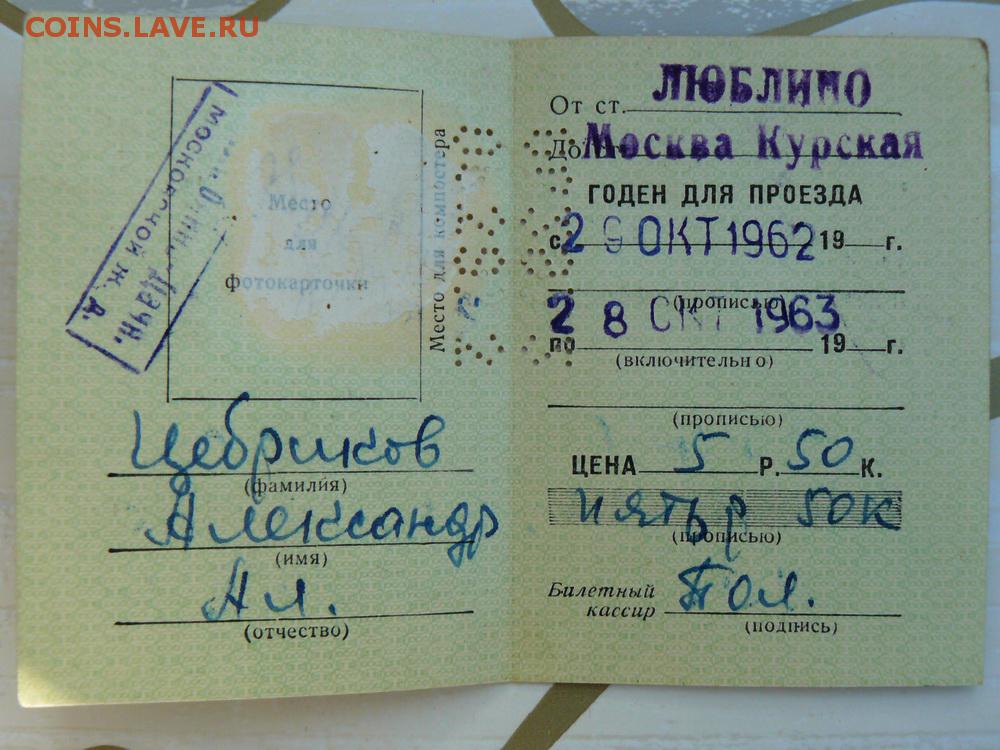 COINS.LAVE.RU
МОСКОВСКОЙ Ж. Д.
Дачн.
Место
для
фотокарточки
Место для компостера
Цебриков
(фамилия)
Александр
(имя)
Ал.
(отчество)
От ст. ЛЮБЛИНО
До Москва Курская
ГОДЕН ДЛЯ ПРОЕЗДА
с 29 ОКТ 1962 19 г.
(прописью)
28 ОКТ 1963
по 19 г.
(включительно)
(прописью)
ЦЕНА 5 Р. 50 К.
пять р 50к
(прописью)
Билетный
кассир Пол.
(подпись)